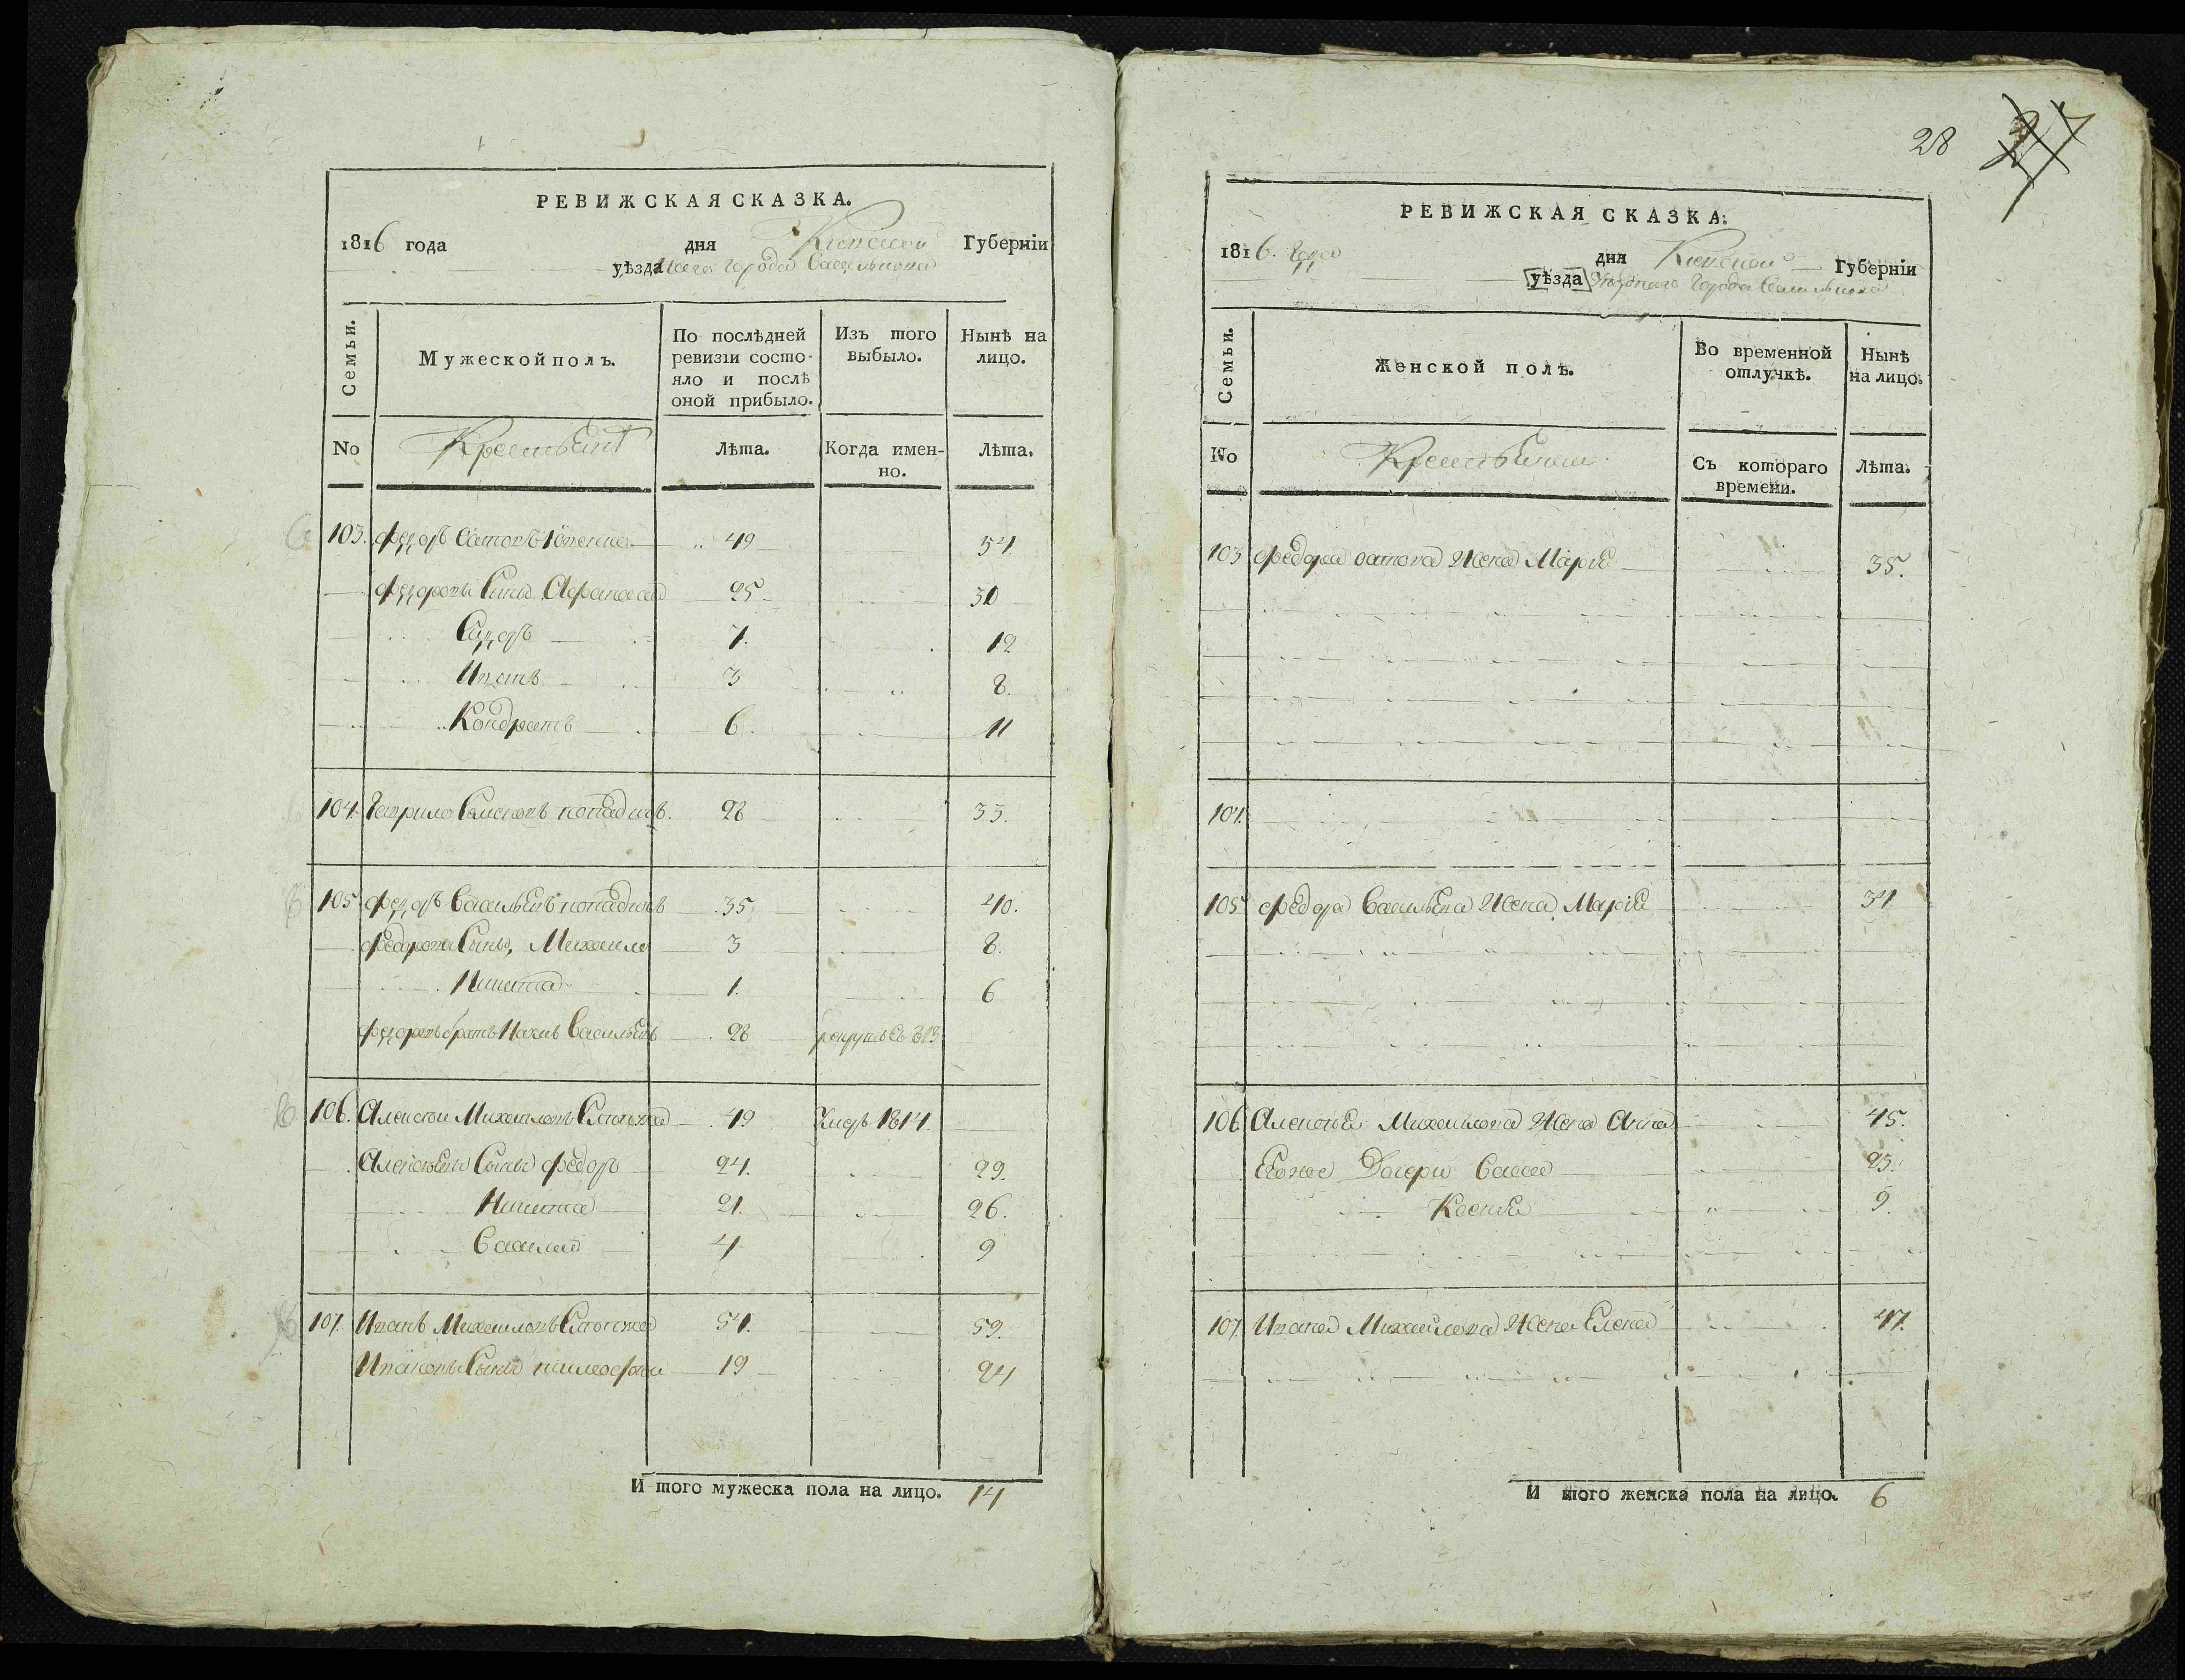 РЕВИЖСКАЯ СКАЗКА.
1816 года дня Киевской Губерніи
уѣзда города Василькова
Семьи. Мужеской полъ. По послѣдней ревизіи состояло и послѣ оной прибыло. Изъ того выбыло. Нынѣ на лицо.
No Крестьянѣ Лѣта. Когда именно. Лѣта.
103. Федоръ 49 54
Федоровы Сыны Афанасій 25 30
Сидоръ 7. 12
Игнатъ 3 8.
Кондратъ 6. 11
104. Гаврило 28 33.
105 Федоръ Васильевъ 35 40.
Федоровы Сыны, Михаило 3 8.
Никита 1. 6
Федоровъ братъ Наумъ Васильевъ 28 рекрутъ въ 813
106. Алексѣй Михайловъ 49 Умеръ 1814.
Алексѣевы Сыны Федоръ 24. 29.
Никита 21. 26.
Василій 4 9
107. Иванъ Михайловъ 54. 59.
Ивановъ Сынъ Тимофѣй 19 24
И того мужеска пола на лицо. 14
28
РЕВИЖСКАЯ СКАЗКА.
1816. года дня Киевской Губерніи
уѣзда Уѣзднаго города Василькова
Семьи. Женской полъ. Во временной отлучкѣ. Нынѣ на лицо.
No Крестьянки Съ котораго времени. Лѣта.
103 Федора жена Марія 35.
104.
105. Федора Васильева жена Марія 34
106 Алексѣя Михайлова жена Анна 45.
Егоже Дочери 25.
Ксенія 9.
107 Ивана Михайлова жена Елена 47.
И того женска пола на лицо. 6